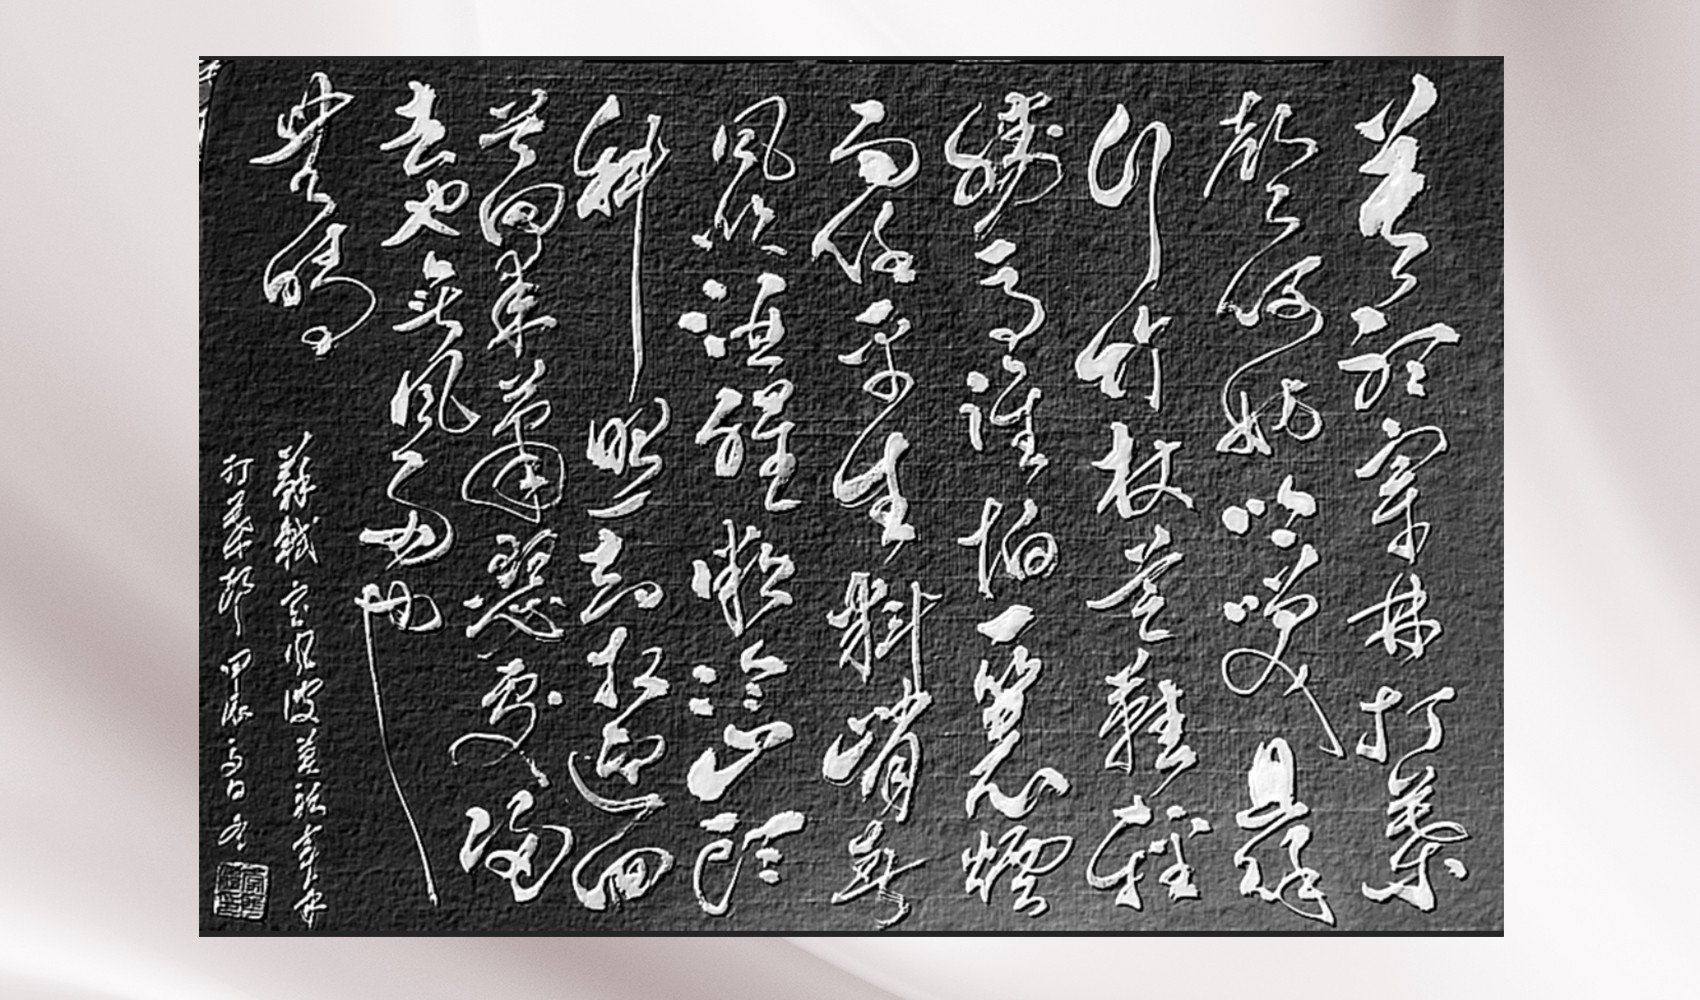 莫聽穿林打葉
聲何妨吟嘯且徐
行竹杖芒鞋輕
勝馬誰怕一蓑煙
雨任平生料峭春
風吹酒醒微冷山頭
斜照卻相迎回
首向來蕭瑟處歸
去也無風雨也
無晴
蘇軾定風波莫聽穿林
打葉聲 甲辰